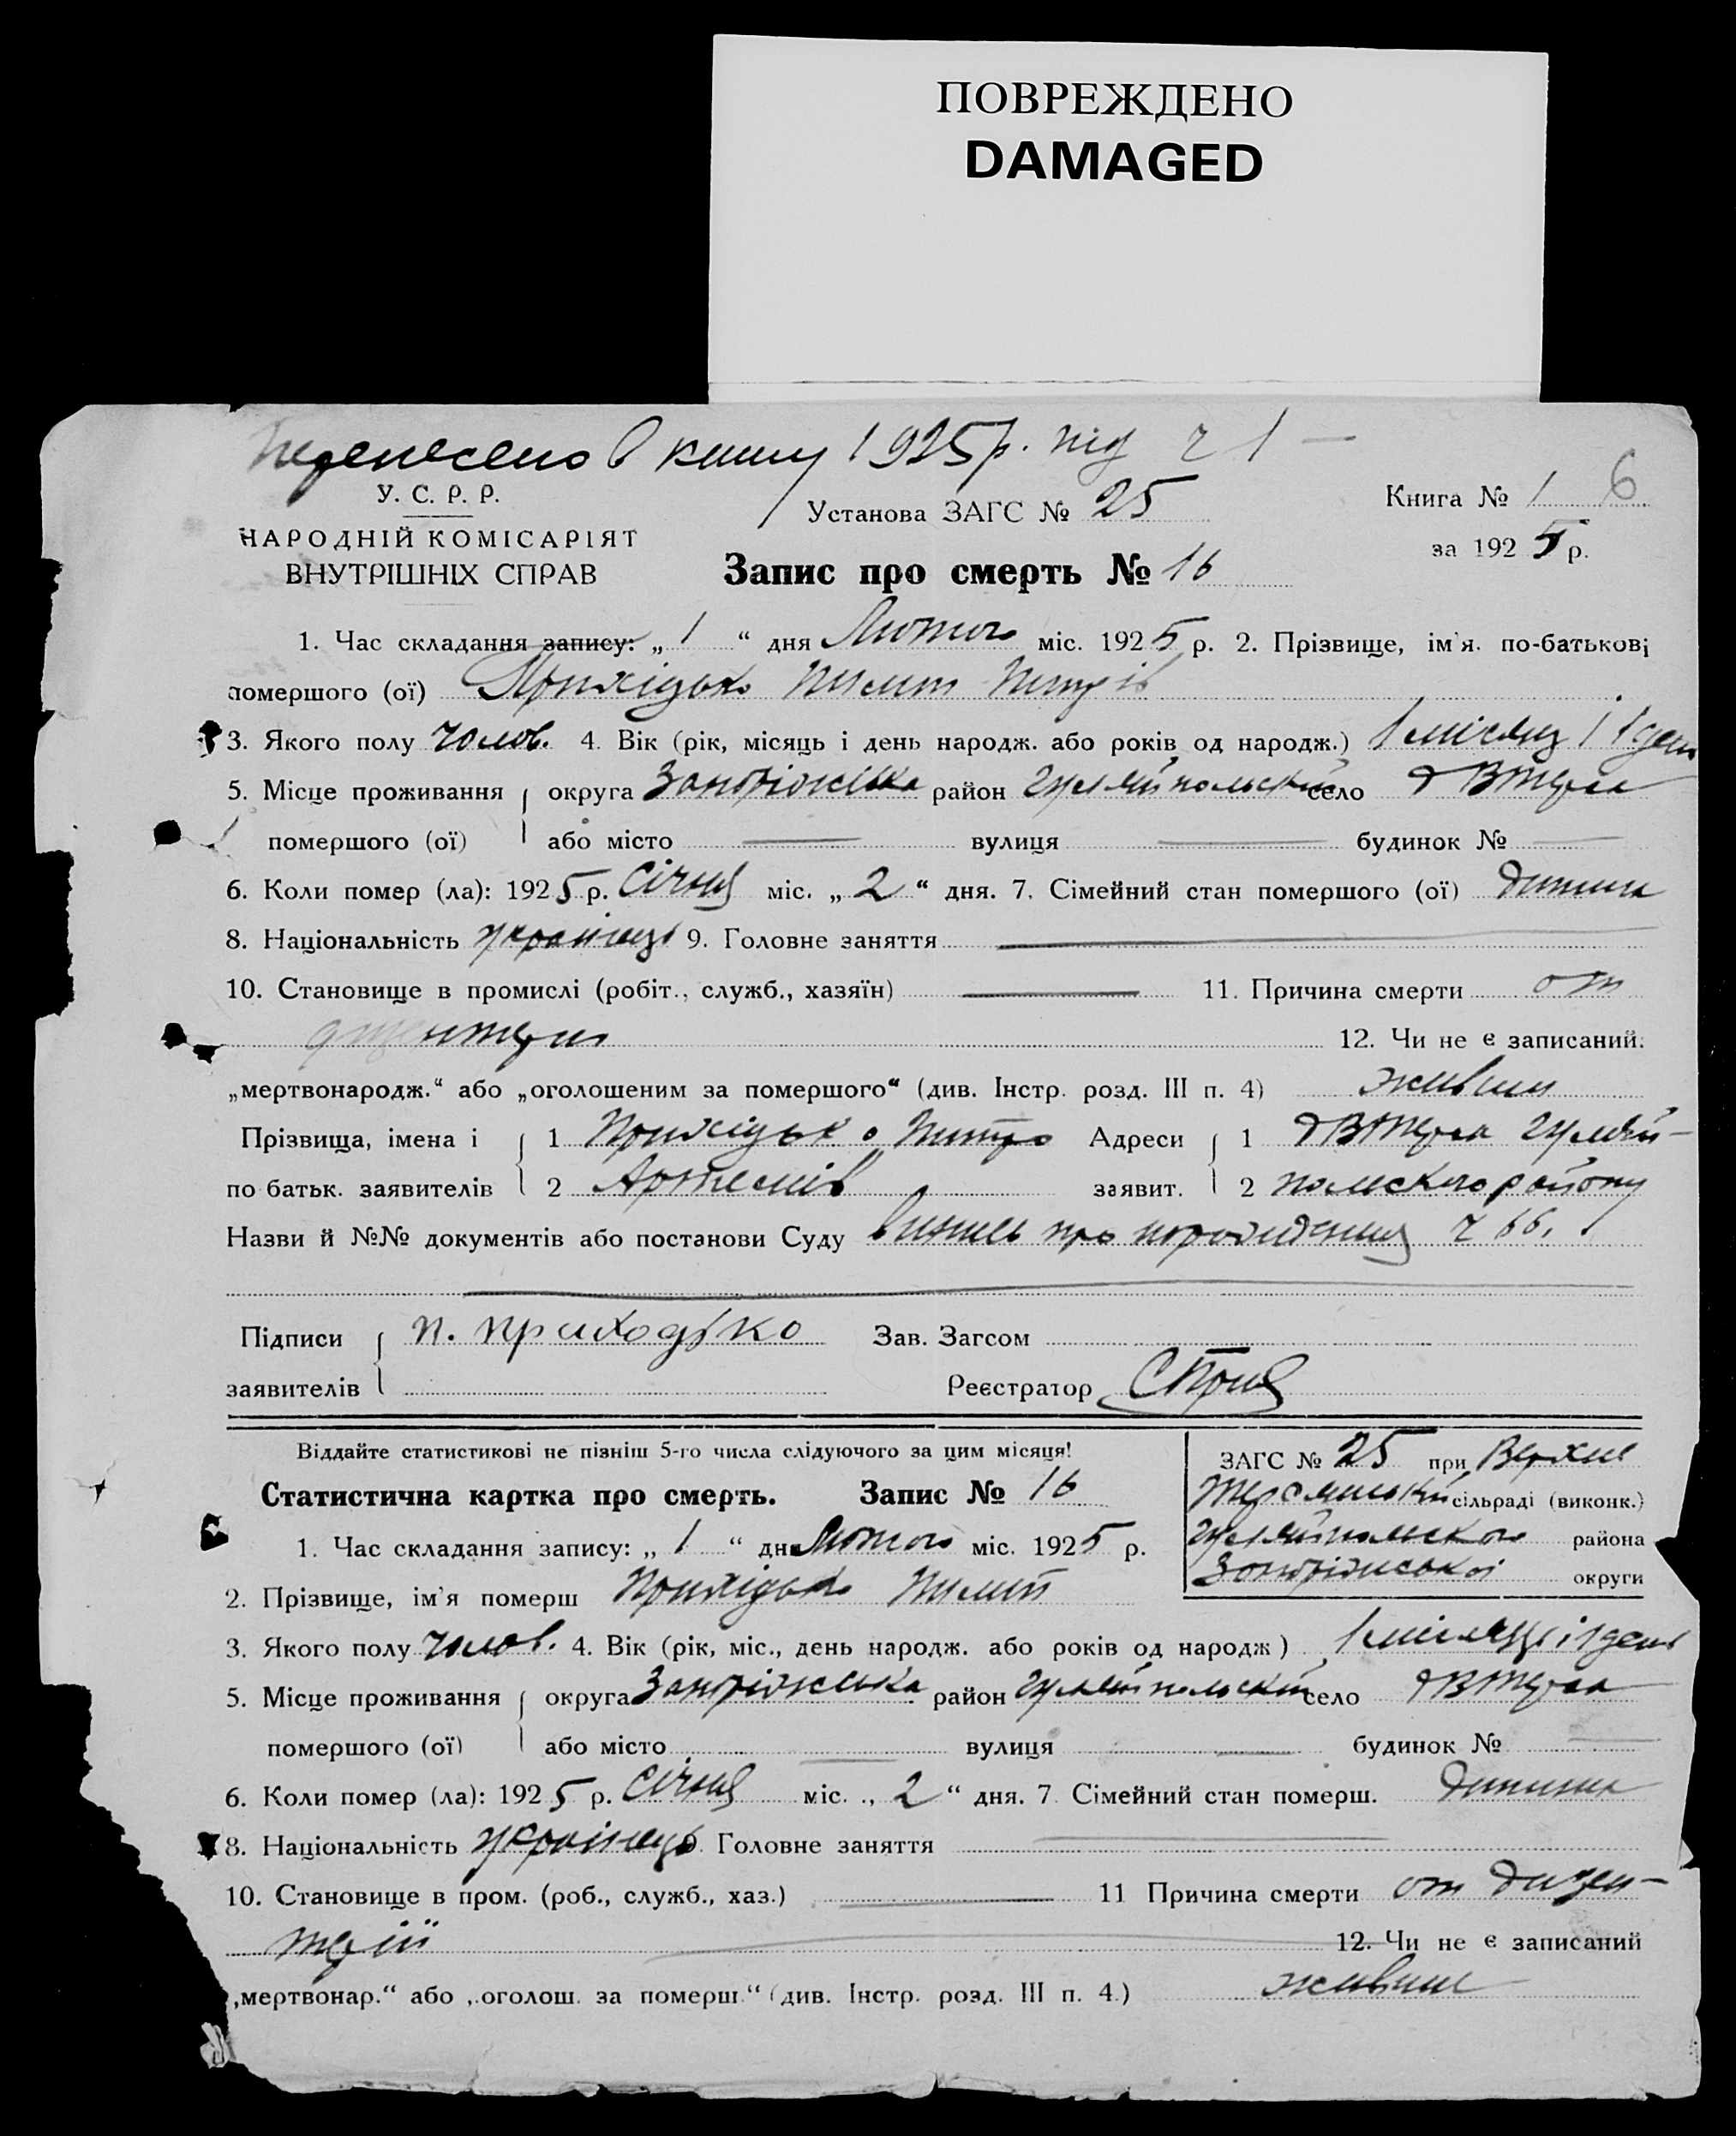 ПОВРЕЖДЕНО
DAMAGED
Перенесено в книгу 1925 р. під ч 1 —
У. С. Р. Р.
Установа ЗАГС № 25
Книга № 1 6
НАРОДНІЙ КОМІСАРІЯТ
за 1925 р.
ВНУТРІШНІХ СПРАВ
Запис про смерть № 16
1. Час складання запису: „ 1 “ дня Лютого міс. 1925 р. 2. Прізвище, ім'я. по-батькові
помершого (ої) Прихідько Пилип Петрів
3. Якого полу чолов. 4. Вік (рік, місяць і день народж. або років од народж.) 1 місяць і 1 день
5. Місце проживання округа Запоріжська район Гуляйпольский село
помершого (ої) або місто — вулиця — будинок № —
6. Коли помер (ла): 1925 р. Січня міс. „ 2 “ дня. 7. Сімейний стан помершого (ої) дитина
8. Національність українець 9. Головне заняття —
10. Становище в промислі (робіт., служб., хазяїн) — 11. Причина смерти от
дизентерии 12. Чи не є записаний.
„мертвонародж.“ або „оголошеним за помершого“ (див. Інстр. розд. III п. 4) живим
Прізвища, імена і 1 Прихідько Петро Адреси 1 Гуляй-
по батьк. заявителів 2 Артемів заявит. 2 польского району
Назви й №№ документів або постанови Суду випись про народження ч 66.
Підписи п. приходько Зав. Загсом
заявителів Реєстратор
Віддайте статистикові не пізніш 5-го числа слідуючого за цим місяця!
ЗАГС № 25 при Верхне
Статистична картка про смерть. Запис № 16
сільраді (виконк.)
1. Час складання запису: „ 1 “ дня Лютого міс. 1925 р.
Гуляйпольского района
Запоріжської округи
2. Прізвище, ім'я померш Прихідько Пилип
3. Якого полу чолов. 4. Вік (рік, міс., день народж. або років од народж ) 1 місяць і 1 день
5. Місце проживання округа Запоріжська район Гуляйпольский село
помершого (ої) або місто — вулиця — будинок № —
6. Коли помер (ла): 1925 р. Січня міс. „ 2 “ дня. 7. Сімейний стан померш. дитина
8. Національність українець 9. Головне заняття —
10. Становище в пром. (роб., служб., хаз.) — 11 Причина смерти от дизен-
терії 12. Чи не є записаний
„мертвонар.“ або „оголош. за померш.“ (див. Інстр. розд. III п. 4.) живим